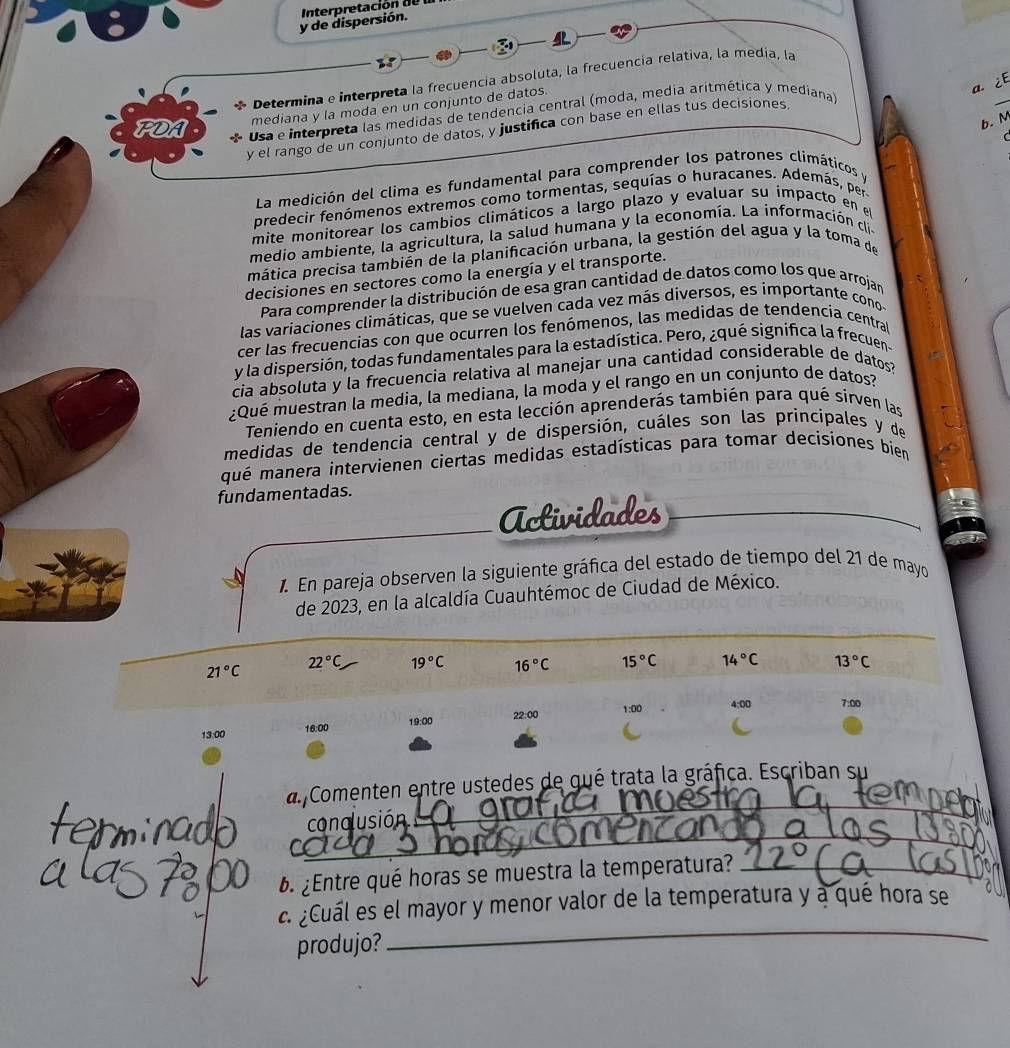 Interpretación de
y de dispersión.
Determina e interpreta la frecuencia absoluta, la frecuencia relativa, la media, la
mediana y la moda en un conjunto de datos.
PDA
Usa e interpreta las medidas de tendencia central (moda, media aritmética y mediana)
y el rango de un conjunto de datos, y justifica con base en ellas tus decisiones.
a. ¿E
b. M
La medición del clima es fundamental para comprender los patrones climáticos y
predecir fenómenos extremos como tormentas, sequías o huracanes. Además, per-
mite monitorear los cambios climáticos a largo plazo y evaluar su impacto en el
medio ambiente, la agricultura, la salud humana y la economía. La información cli-
mática precisa también de la planificación urbana, la gestión del agua y la toma de
decisiones en sectores como la energía y el transporte.
Para comprender la distribución de esa gran cantidad de datos como los que arrojan
las variaciones climáticas, que se vuelven cada vez más diversos, es importante cono-
cer las frecuencias con que ocurren los fenómenos, las medidas de tendencia central
y la dispersión, todas fundamentales para la estadística. Pero, ¿qué significa la frecuen-
cia absoluta y la frecuencia relativa al manejar una cantidad considerable de datos?
¿Qué muestran la media, la mediana, la moda y el rango en un conjunto de datos?
Teniendo en cuenta esto, en esta lección aprenderás también para qué sirven las
medidas de tendencia central y de dispersión, cuáles son las principales y de
qué manera intervienen ciertas medidas estadísticas para tomar decisiones bien
fundamentadas.
Actividades
1. En pareja observen la siguiente gráfica del estado de tiempo del 21 de mayo
de 2023, en la alcaldía Cuauhtémoc de Ciudad de México.
21°C 22°C 19°C 16°C 15°C 14°C 13°C
13:00 16:00 19:00 22:00 1:00 4:00 7:00
a. Comenten entre ustedes de qué trata la gráfica. Escriban su
conclusión. La grafica muestra la
cada 3 horas, comenzando a las
terminado
a las 7:00
b. ¿Entre qué horas se muestra la temperatura? 22°C a las
c. ¿Cuál es el mayor y menor valor de la temperatura y a qué hora se
produjo?